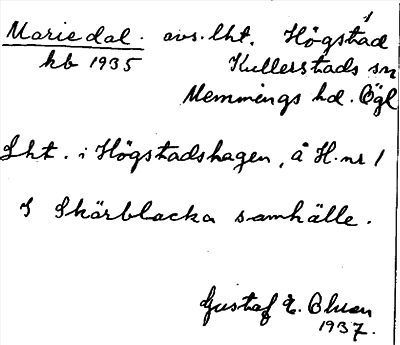 Mariedal. avs. lht. Högstad 1
kb 1935 Kullerstads sn
Memmings hd. Ögl
Lht. i Högstadshagen, å H. nr 1
I Skärblacka samhälle.
Gustaf E. Olson
1937.